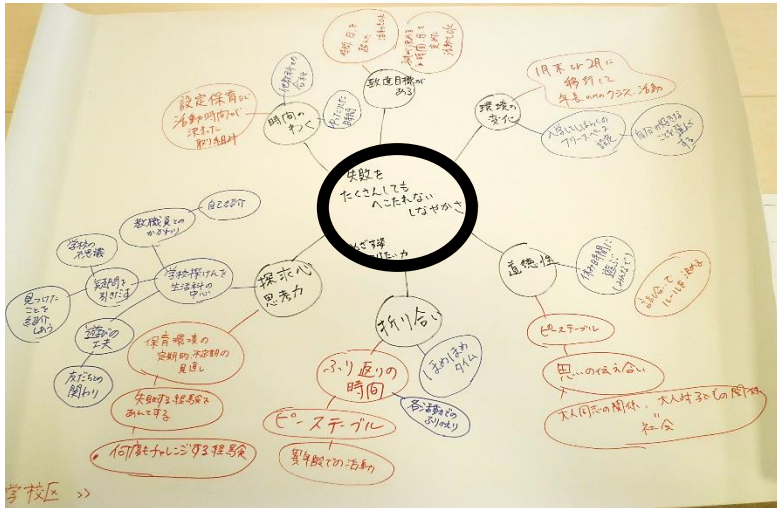 失敗を
たくさんしても
へこたれない
しなやかさ
めざす姿
けたい力
時間の
わく
他教科との
設定保育など
活動時間が
決まった
取り組み
到達目標が
ある
時間、日を
環境の
変化
1月末から2月に
移行して
年長のみのクラス活動
入学してしばらくの
フリースペース
設定
自分の好きな
ことを選んで
する
道徳性
休み時間に
遊ぶ
(みんなで)
話し合って
ルールを決める
ピーステーブル
思いの伝え合い
大人同志の関係、大人対子どもの関係
社会
折り合い
ほめほめ
タイム
ふり返りの
時間
各活動での
ふりかえり
ピーステーブル
異年齢での活動
探求心
思考力
学校探けんを
生活科の
中心
教職員との
かかわり
自己紹介
学校の
不思議
疑問を
引きだす
見つけた
ことを
紹介
しあう
遊びの
工夫
友だちとの
関わり
保育環境の
定期的、不定期の
見直し
失敗する経験を
あえてする
何度もチャレンジする経験
学校区 >>